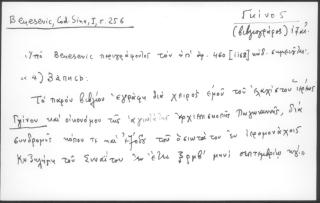 Benesevic, Cod. Sin., I, σ. 256
Γκίνος
(βιβλιογράφος) ιζ' αἰ.
Ὑπὸ Benesevic περιγράφονται τὸν ὑπ' ἀρ. 460 [1168] κώδ.
« 4) Запись:
Τὸ παρὸν βιβλίον ἐγράφη διὰ χειρὸς ἐμοῦ τοῦ ἐλαχίστου ἱερέως
Γγίνου καὶ οἰκονόμου τῆς ἁγιωτάτης ἀρχιεπισκοπῆς Πωγωνιανῆς, διὰ
συνδρομῆς κόπου τε καὶ ἐξόδου τοῦ ὁσιωτάτου ἐν ἱερομονάχοις
τοῦ Σιναΐτου ἐν ἔτει ζρμβ' μηνὶ σεπτεμβρίω